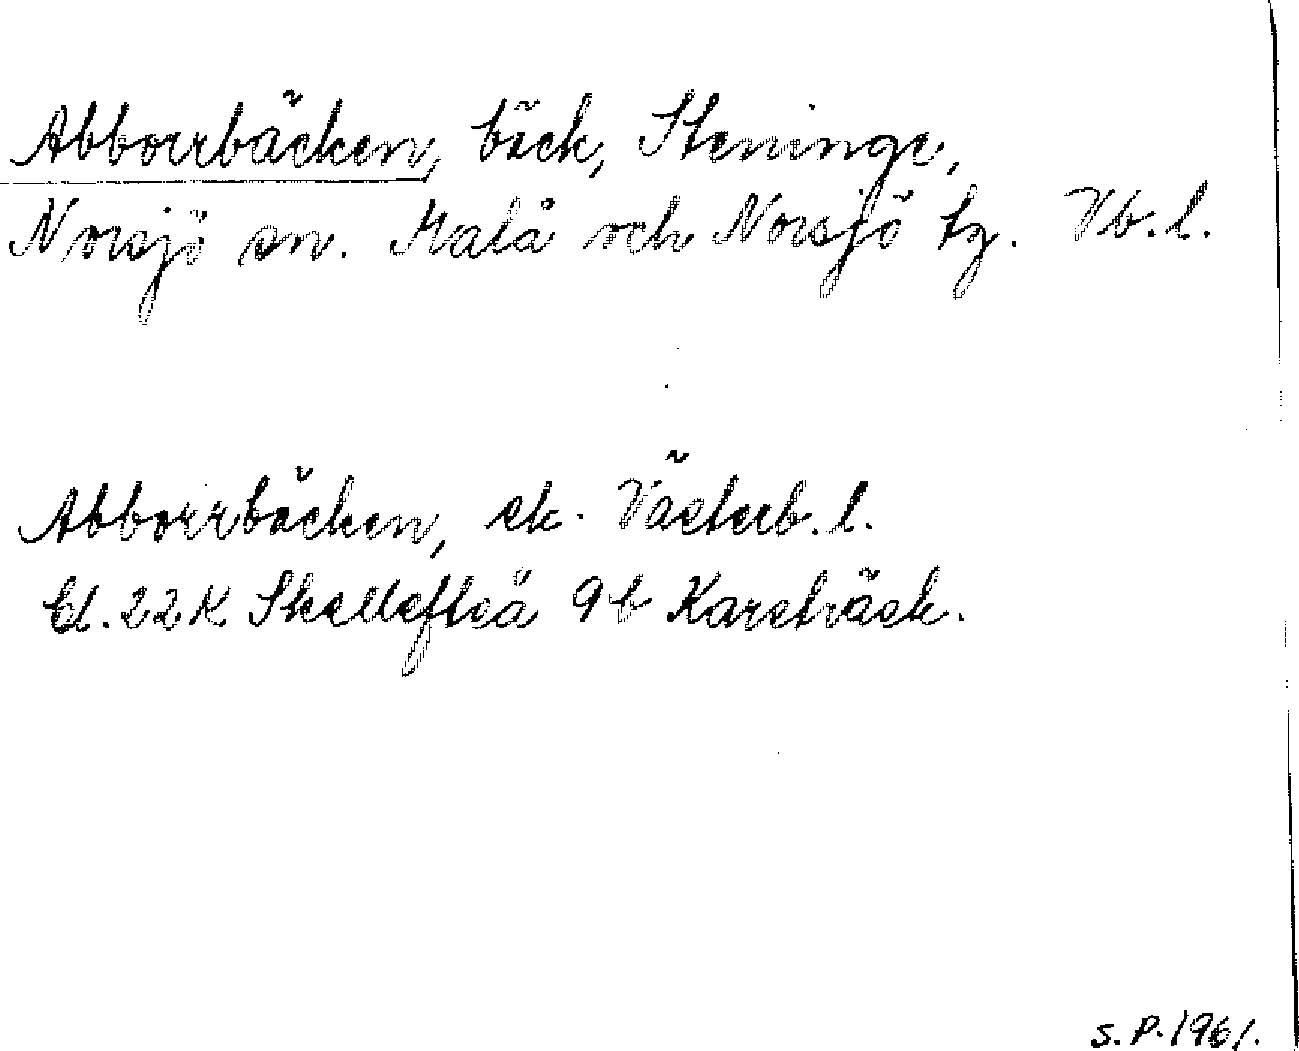 Abborrbäcken, bäck, Steninge,
Norsjö sn. Malå och Norsjö tg. Vb.l.
Abborrbäcken, ek. Västerb.l.
Bl. 22K Skellefteå 9b Karsträsk.
S.P. 1961.